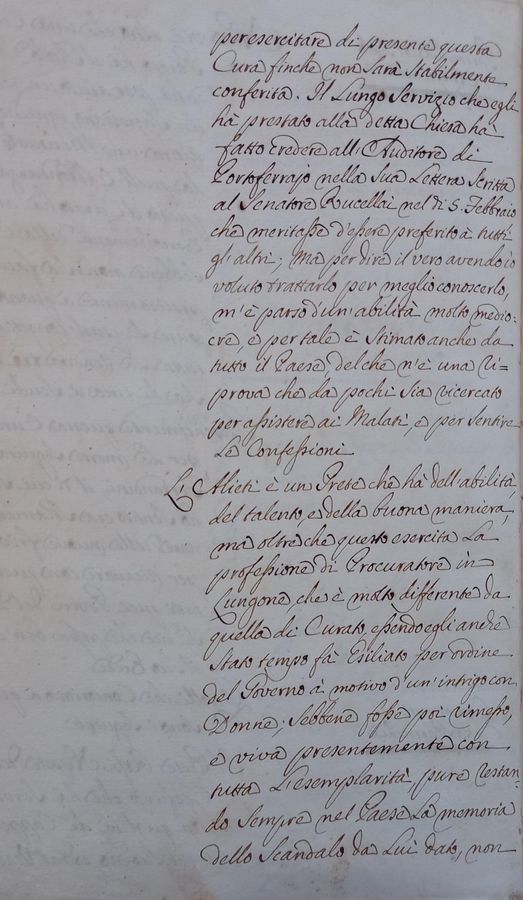 per esercitare di presente questa
Cura finche non sarà stabilmente
conferita. Il Lungo Servizio che egli
hà prestato alla detta Chiesa hà
fatto credere all' Auditore di
Portoferrajo nella Sua Lettera Scritta
al Senatore Rucellai nel dì 5. Febbraio
che meritasse d'essere preferito à tutti
gl'altri; Ma per dire il vero avendo io
voluto trattarlo per meglio conoscerlo,
m'è parso d'un'abilità molto medio-
cre, e per tale è Stimato anche da
tutto il Paese, del che n'è una ri=
prova che da pochi Sia ricercato
per assistere ai Malati, e per sentire
Le Confessioni
L' Alieti è un Prete che hà dell'abilità,
del talento, e della buona maniera,
ma oltre che questo esercita La
professione di Procuratore in
Lungone, che è molto differente da
quella di Curato, essendo egli anche
Stato tempo fà Esiliato per ordine
del Governo à motivo d'un'intrigo con
Donne; Sebbene fosse poi rimesso,
e viva presentemente con
tutta L'esemplarità, pure restan
do Sempre nel Paese La memoria
dello Scandalo da Lui dato, non